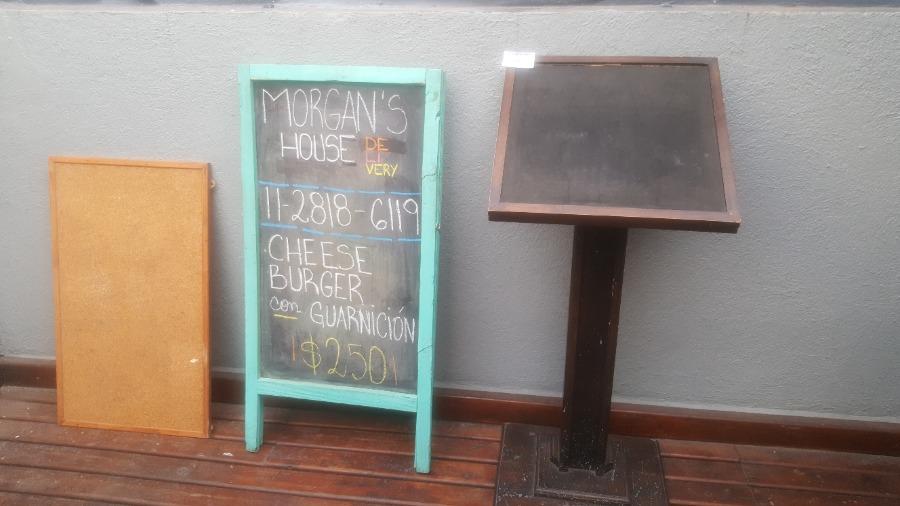 MORGAN'S
HOUSE DE
LI
VERY
11-2818-6119
CHEESE
BURGER
con GUARNICIÓN
¡$250!